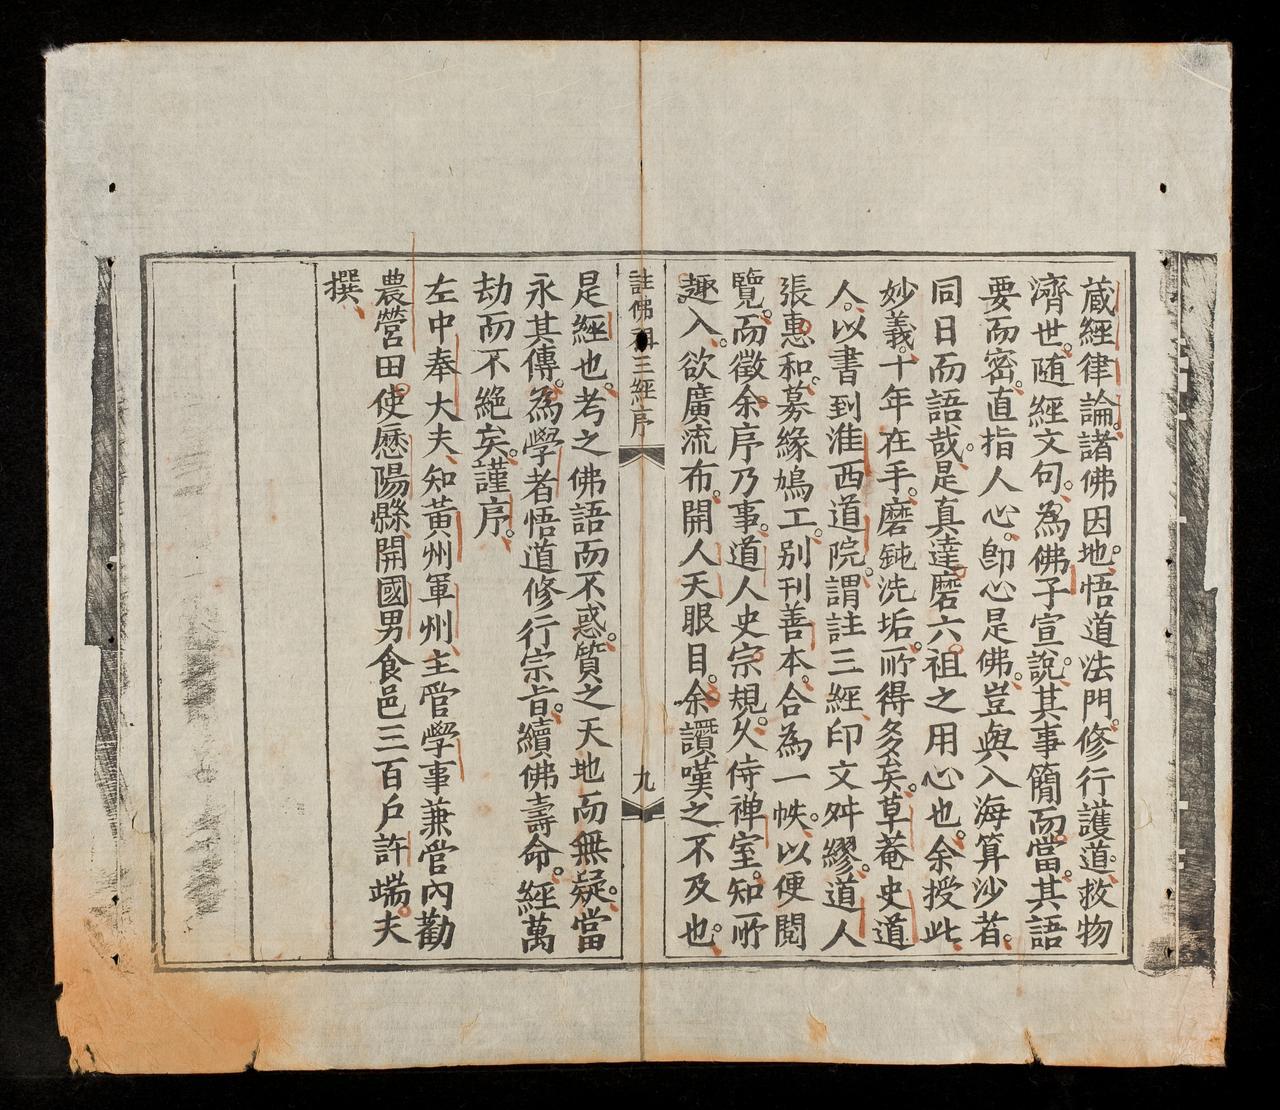 蔵經律論諸佛因地悟道法門修行護道救物
濟世随經文句為佛子宣說其事簡而當其語
要而密直指人心即心是佛豈與入海算沙者
同日而語哉是真達磨六祖之用心也余授此
妙義十年在手磨鈍洗垢所得多矣草菴史道
人以書到淮西道院謂註三經印文舛繆道人
張惠和募緣鳩工别刊善本合為一帙以便閱
覽而徵余序乃事道人史宗規久侍禅室知所
趣入欲廣流布開人天眼目余讚嘆之不及也
註佛祖三經序 九
是經也考之佛語而不惑質之天地而無疑當
永其傳為學者悟道修行宗旨續佛壽命經萬
劫而不絕矣謹序
左中奉大夫知黃州軍州主管學事兼營內勸
農營田使歷陽縣開國男食邑三百户許端夫
撰